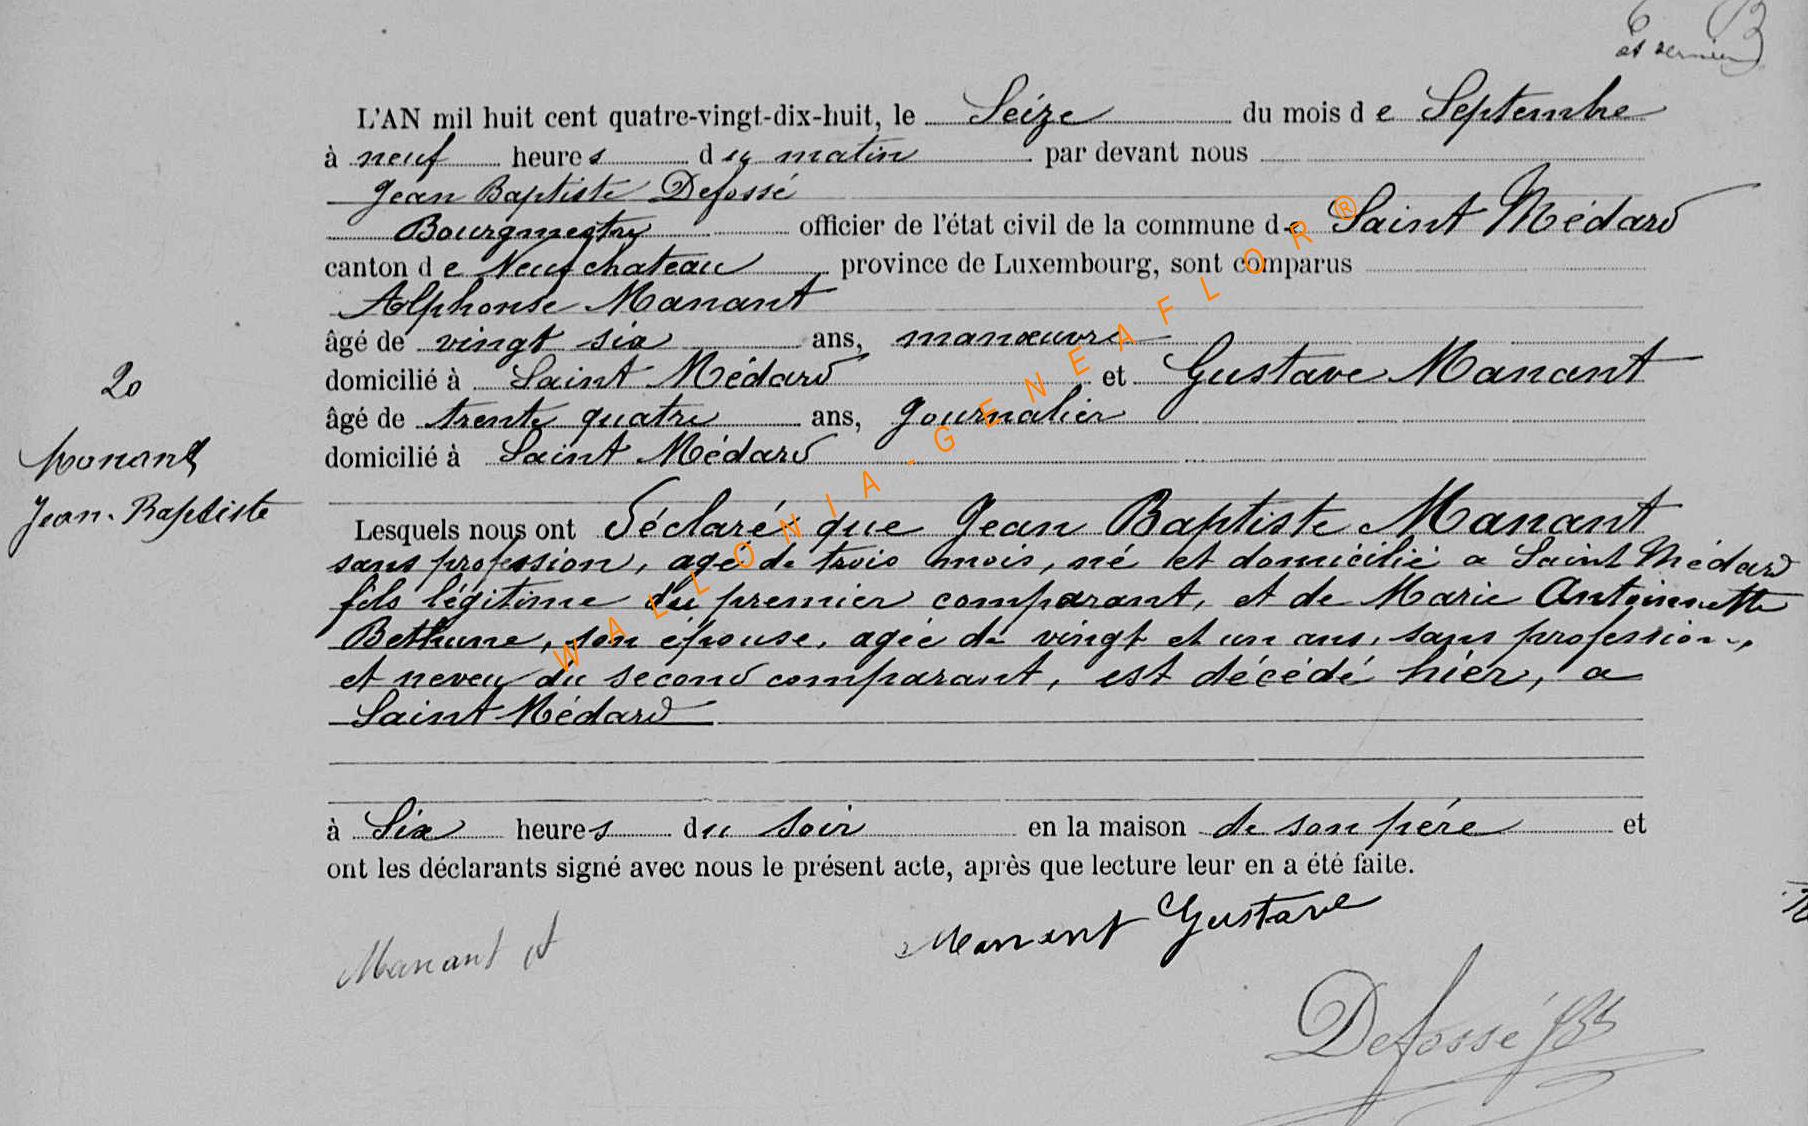 6 B
et dernier
L'AN mil huit cent quatre-vingt-dix-huit, le Seize du mois de Septembre
à neuf heures du matin par devant nous
Jean Baptiste Defossé
Bourgmestre officier de l'état civil de la commune de Saint Médard
canton de Neufchateau province de Luxembourg, sont comparus
Alphonse Manant
âgé de vingt six ans, manœuvre
domicilié à Saint Médard et Gustave Manant
âgé de trente quatre ans, journalier
domicilié à Saint Médard
20
Manant
Jean-Baptiste
Lesquels nous ont déclaré que Jean Baptiste Manant
sans profession, agé de trois mois, né et domicilié a Saint Médard
fils légitime du premier comparant, et de Marie Antoinette
Bethune, son épouse, agée de vingt et un ans, sans profession,
et neveu du second comparant, est décédé hier, a
Saint Médard
à Six heures du soir en la maison de son père et
ont les déclarants signé avec nous le présent acte, après que lecture leur en a été faite.
Manant A
Manant Gustave
Defossé JBt
WALLONIA-GENEAFLOR®